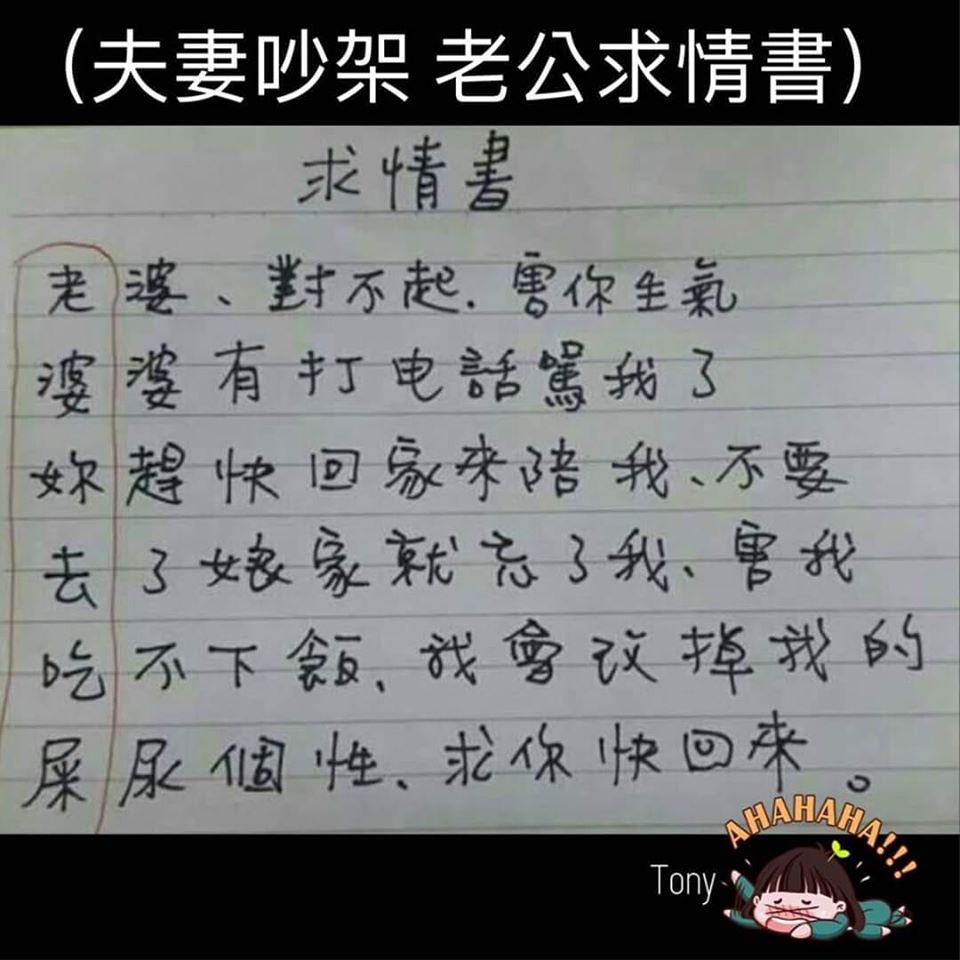 （夫妻吵架 老公求情書）
求情書
老婆、對不起.害你生氣
婆婆有打电話罵我了
妳趕快回家來陪我、不要
去了娘家就忘了我、害我
吃不下飯、我會改掉我的
屎尿個性、求你快回來。
AHAHAHA!!!
Tony